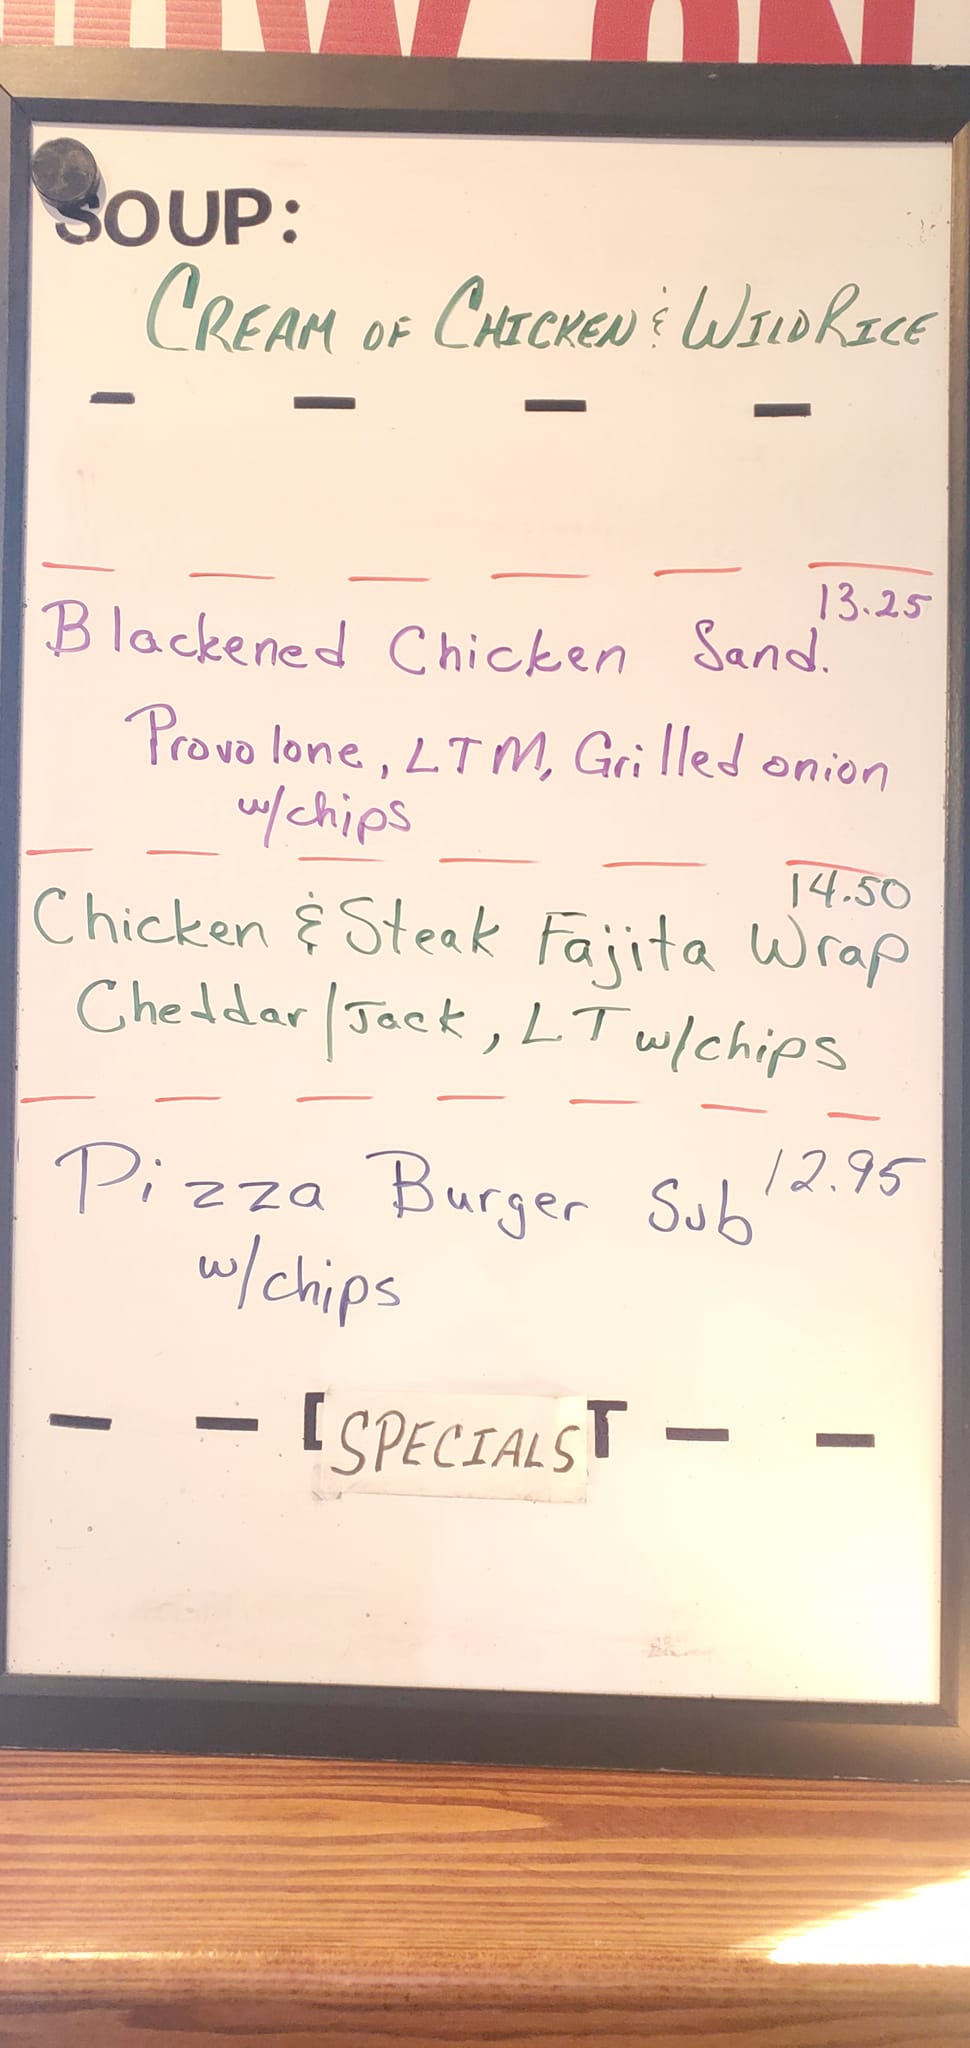 SOUP:
CREAM OF CHICKEN & WILD RICE
13.25
Blackened Chicken Sand.
Provolone, LTM, Grilled onion
w/chips
14.50
Chicken & Steak Fajita Wrap
Cheddar/Jack, LT w/chips
Pizza Burger Sub 12.95
w/chips
SPECIALS